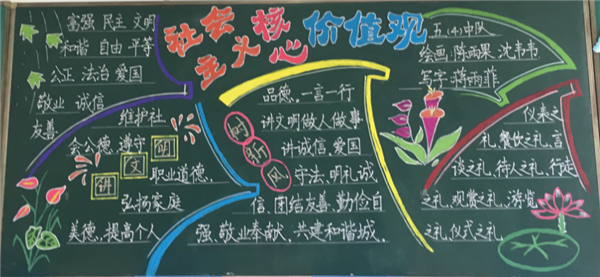 社会主义核心价值观
富强 民主 文明
和谐 自由 平等
公正 法治 爱国
敬业 诚信
友善
维护社
会公德，遵守
职业道德，
弘扬家庭
美德，提高个人
讲文明
品德，一言一行
讲文明做人做事
讲诚信，爱国
守法，明礼诚
信，团结友善，勤俭自
强、敬业奉献，共建和谐城。
树新风
五（4）中队
绘画：陈雨果 沈韦韦
写字：蒋雨菲
仪表之
礼，餐饮之礼，言
谈之礼，待人之礼，行走
之礼，观赏之礼，游览
之礼，仪式之礼